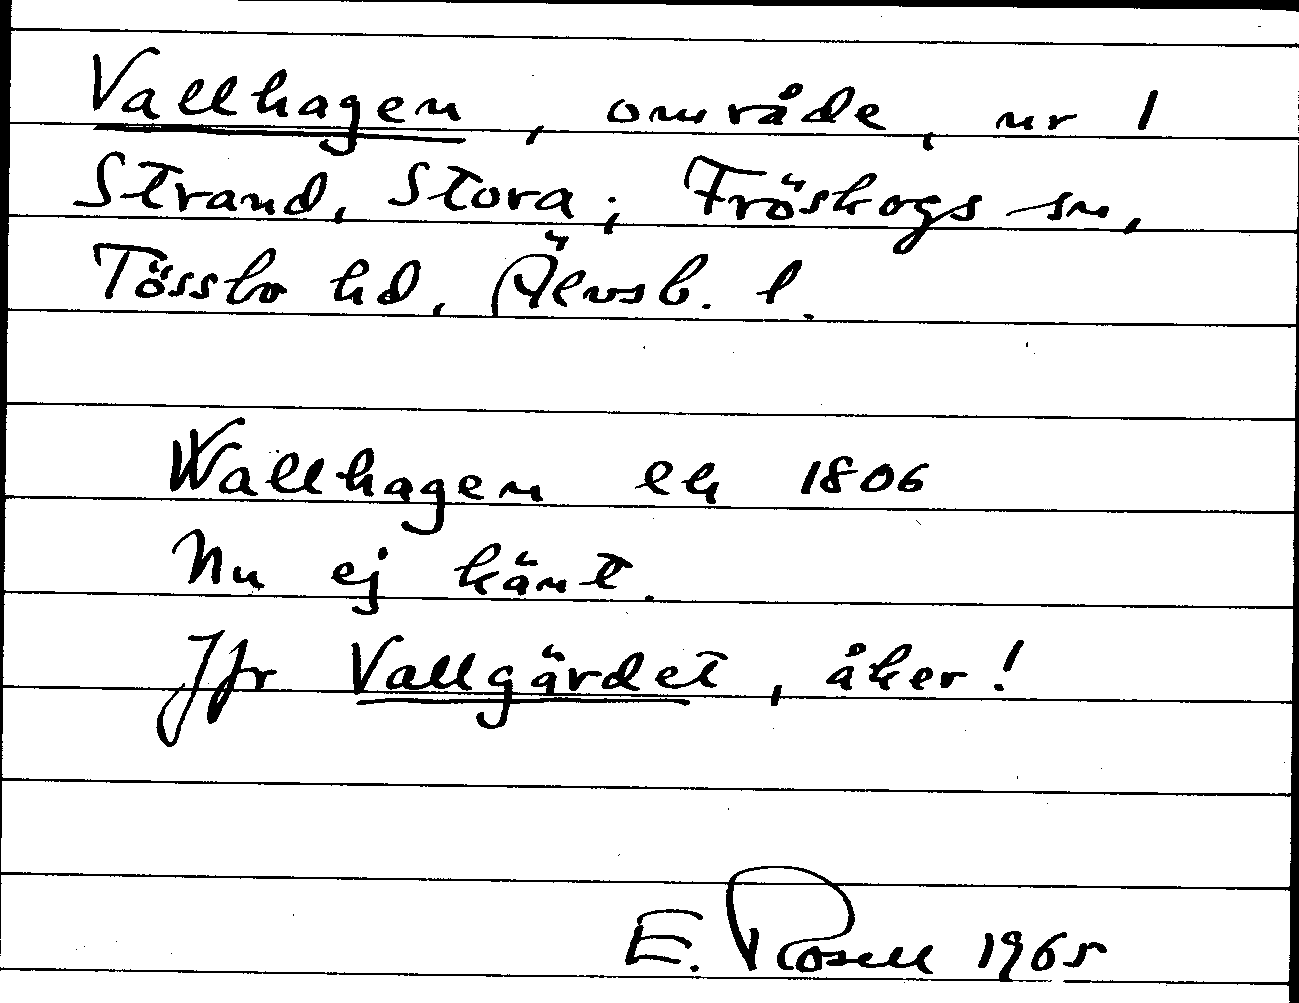 Vallhagen, område, nr 1
Strand, Stora; Fröskogs sn,
Tössbo hd, Älvsb. l.
Wallhagen lh 1806
Nu ej känt.
Jfr Vallgärdet, åker!
E. Rosell 1965